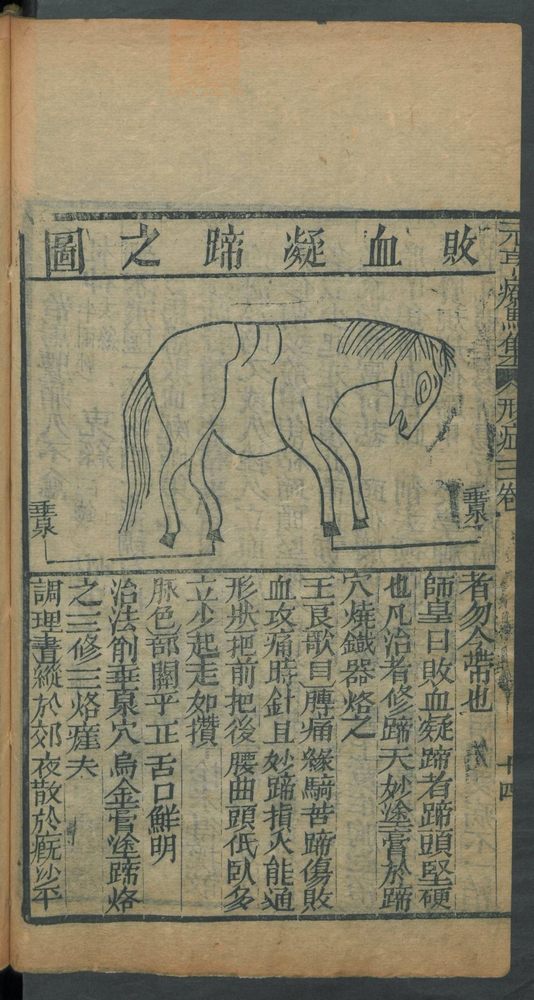 敗血凝蹄之圖
元亨療馬集
形症三卷
十四
垂泉
垂泉
者勿令帶也
師皇曰敗血凝蹄者蹄頭堅硬
也凡治者修蹄天妙塗膏於蹄
穴燒鐵器烙之
王良歌曰膊痛緣騎苦蹄傷敗
血攻痛時針且妙蹄損火能通
形狀把前把後腰曲頭低臥多
立少起走如攢
脉色部關平正舌口鮮明
治法削垂泉穴烏金膏塗蹄烙
之三修三烙痊夫
調理晝縱於郊夜散於廐沙平